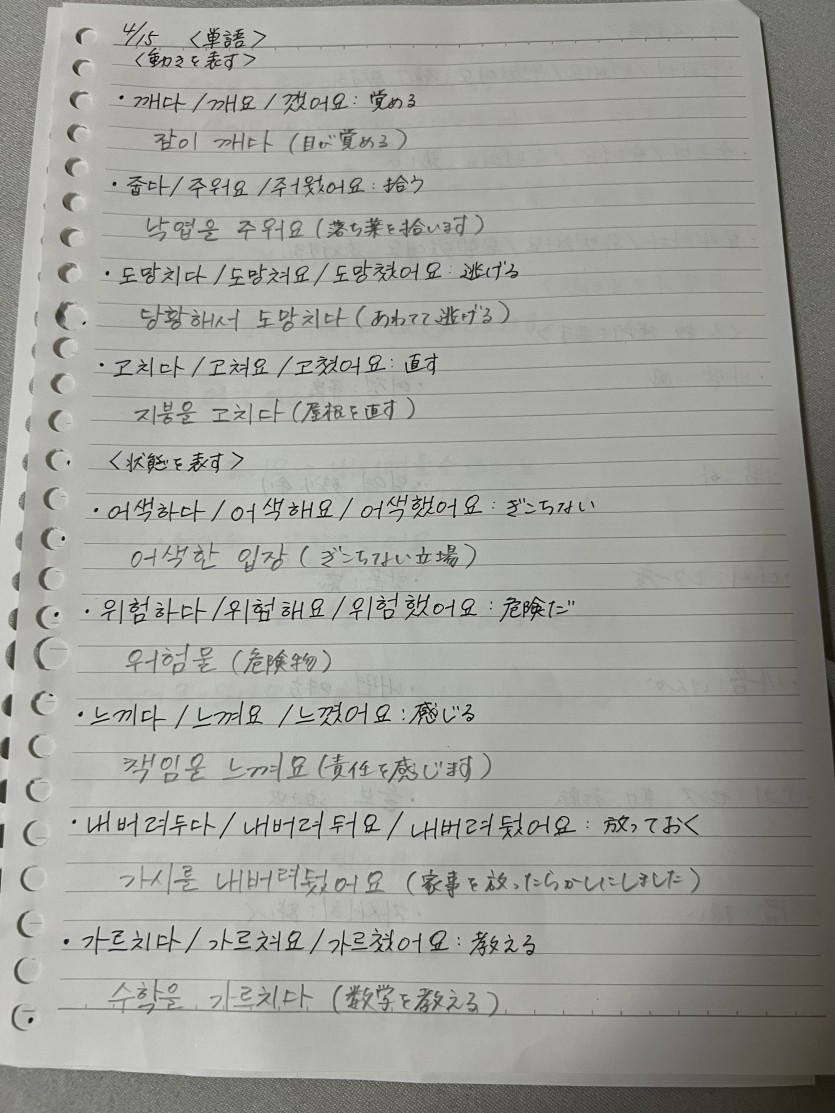 4/15 <単語>
<動きを表す>
・깨다/깨요/깼어요:覚める
잠이 깨다 (目が覚める)
・줍다/주워요/주웠어요:拾う
낙엽을 주워요 (落ち葉を拾います)
・도망치다/도망쳐요/도망쳤어요:逃げる
당황해서 도망치다 (あわてて逃げる)
・고치다/고쳐요/고쳤어요:直す
지붕을 고치다 (屋根を直す)
<状態を表す>
・어색하다/어색해요/어색했어요:ぎこちない
어색한 입장 (ぎこちない立場)
・위험하다/위험해요/위험했어요:危険だ
위험물 (危険物)
・느끼다/느껴요/느꼈어요:感じる
책임을 느껴요 (責任を感じます)
・내버려두다/내버려둬요/내버려뒀어요:放っておく
가시를 내버려뒀어요 (家事を放ったらかしにしました)
・가르치다/가르쳐요/가르쳤어요:教える
수학을 가르치다 (数学を教える)